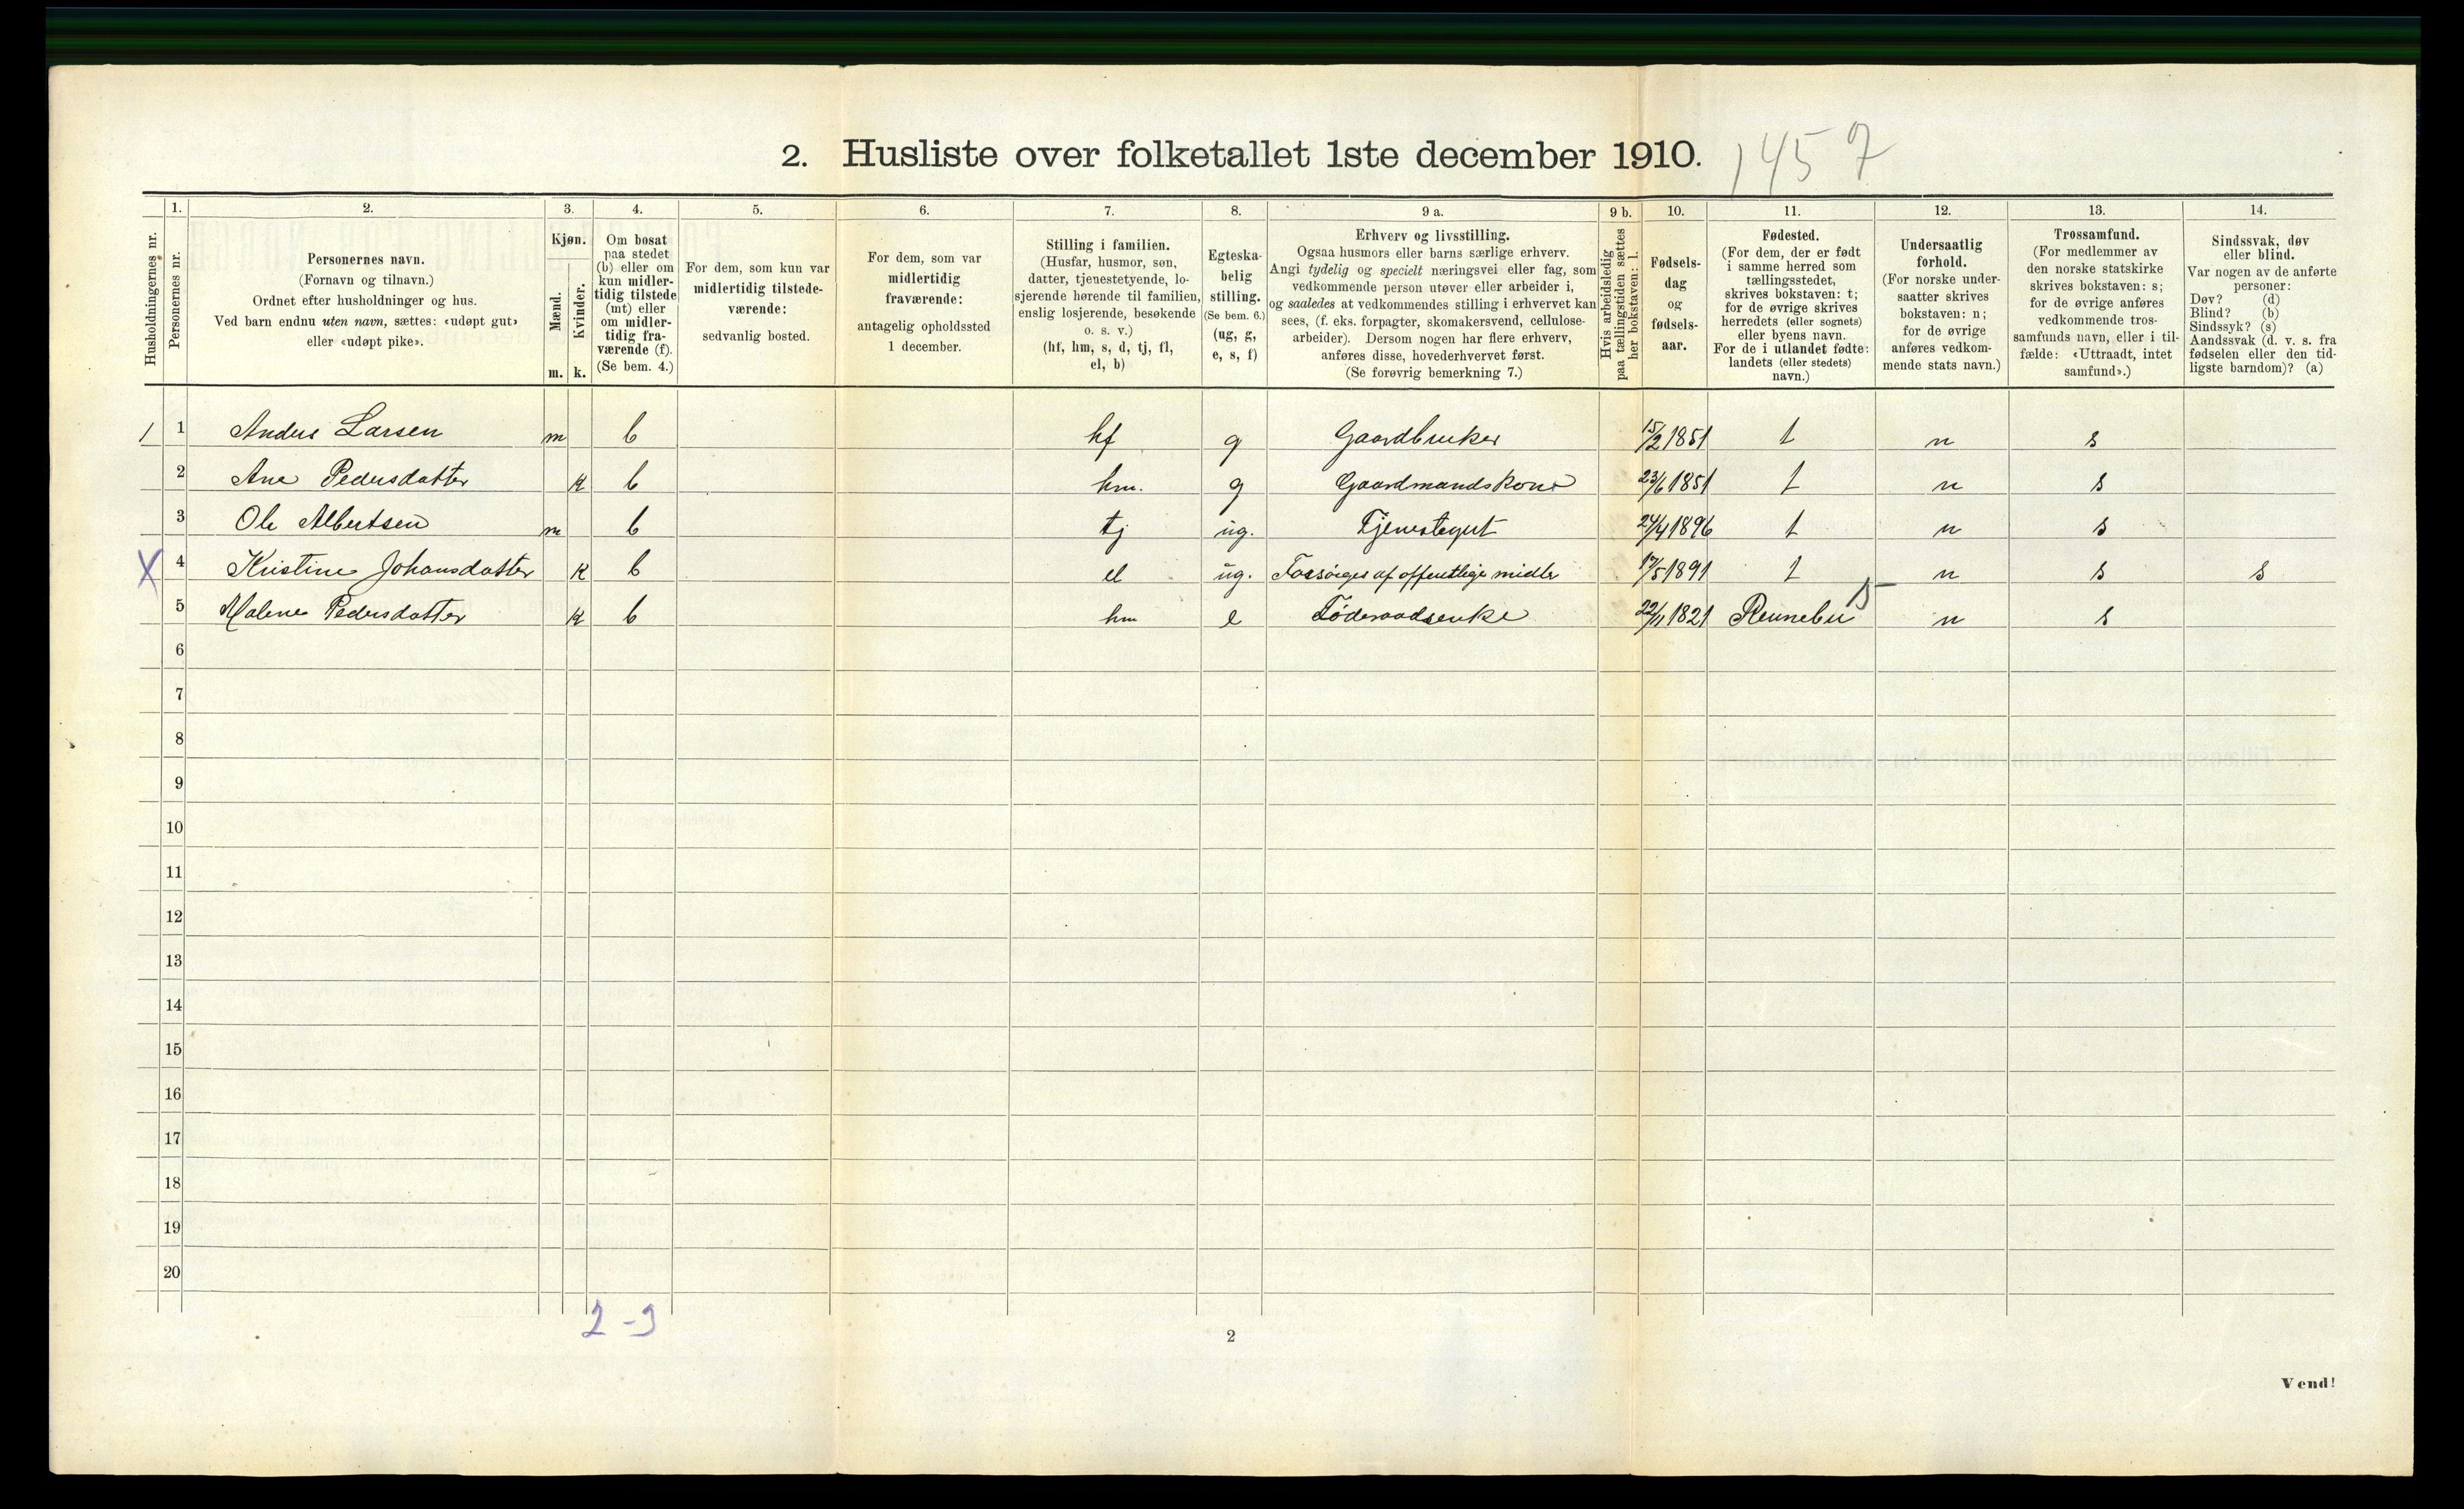 2. Husliste over folketallet 1ste december 1910. 1457
Husholdningernes nr.
1. Personernes nr.
2. Personernes navn.
(Fornavn og tilnavn.)
Ordnet efter husholdninger og hus.
Ved barn endnu uten navn, sættes: «udøpt gut»
eller «udøpt pike».
3. Kjøn.
Mænd. m.
Kvinder. k.
4. Om bosat
paa stedet
(b) eller om
kun midler-
tidig tilstede
(mt) eller
om midler-
tidig fra-
værende (f).
(Se bem. 4.)
5. For dem, som kun var
midlertidig tilstede-
værende:
sedvanlig bosted.
6. For dem, som var
midlertidig
fraværende:
antagelig opholdssted
1 december.
7. Stilling i familien.
(Husfar, husmor, søn,
datter, tjenestetyende, lo-
sjerende hørende til familien,
enslig losjerende, besøkende
o. s. v.)
(hf, hm, s, d, tj, fl,
el, b)
8. Egteska-
belig
stilling.
(Se bem. 6.)
(ug, g,
e, s, f)
9 a. Erhverv og livsstilling.
Ogsaa husmors eller barns særlige erhverv.
Angi tydelig og specielt næringsvei eller fag, som
vedkommende person utøver eller arbeider i,
og saaledes at vedkommendes stilling i erhvervet kan
sees, (f. eks. forpagter, skomakersvend, cellulose-
arbeider). Dersom nogen har flere erhverv,
anføres disse, hovederhvervet først.
(Se forøvrig bemerkning 7.)
9 b. Hvis arbeidsledig
paa tællingstiden sættes
her bokstaven: l.
10. Fødsels-
dag
og
fødsels-
aar.
11. Fødested.
(For dem, der er født
i samme herred som
tællingsstedet,
skrives bokstaven: t;
for de øvrige skrives
herredets (eller sognets)
eller byens navn.
For de i utlandet fødte:
landets (eller stedets)
navn.)
12. Undersaatlig
forhold.
(For norske under-
saatter skrives
bokstaven: n;
for de øvrige
anføres vedkom-
mende stats navn.)
13. Trossamfund.
(For medlemmer av
den norske statskirke
skrives bokstaven: s;
for de øvrige anføres
vedkommende tros-
samfunds navn, eller i til-
fælde: «Uttraadt, intet
samfund».)
14. Sindssvak, døv
eller blind.
Var nogen av de anførte
personer:
Døv? (d)
Blind? (b)
Sindssyk? (s)
Aandssvak (d. v. s. fra
fødselen eller den tid-
ligste barndom)? (a)
1 1 Anders Larsen m b hf g Gaardbruker 15/2 1851 t n s
2 Ane Pedersdatter k b hm. g Gaardmandskone 23/6 1851 t n s
3 Ole Albertsen m b tj ug. Tjenestegut 24/4 1896 t n s
X 4 Kristine Johansdatter k b el ug. Forsørges af offentlige midler 17/5 1891 t n s s
5 Malene Pedersdatter k b hm e Føderaadsenke 22/11 1821 Rennebu 15 n s
6
7
8
9
10
11
12
13
14
15
16
17
18
19
20
2 - 3
2
Vend!